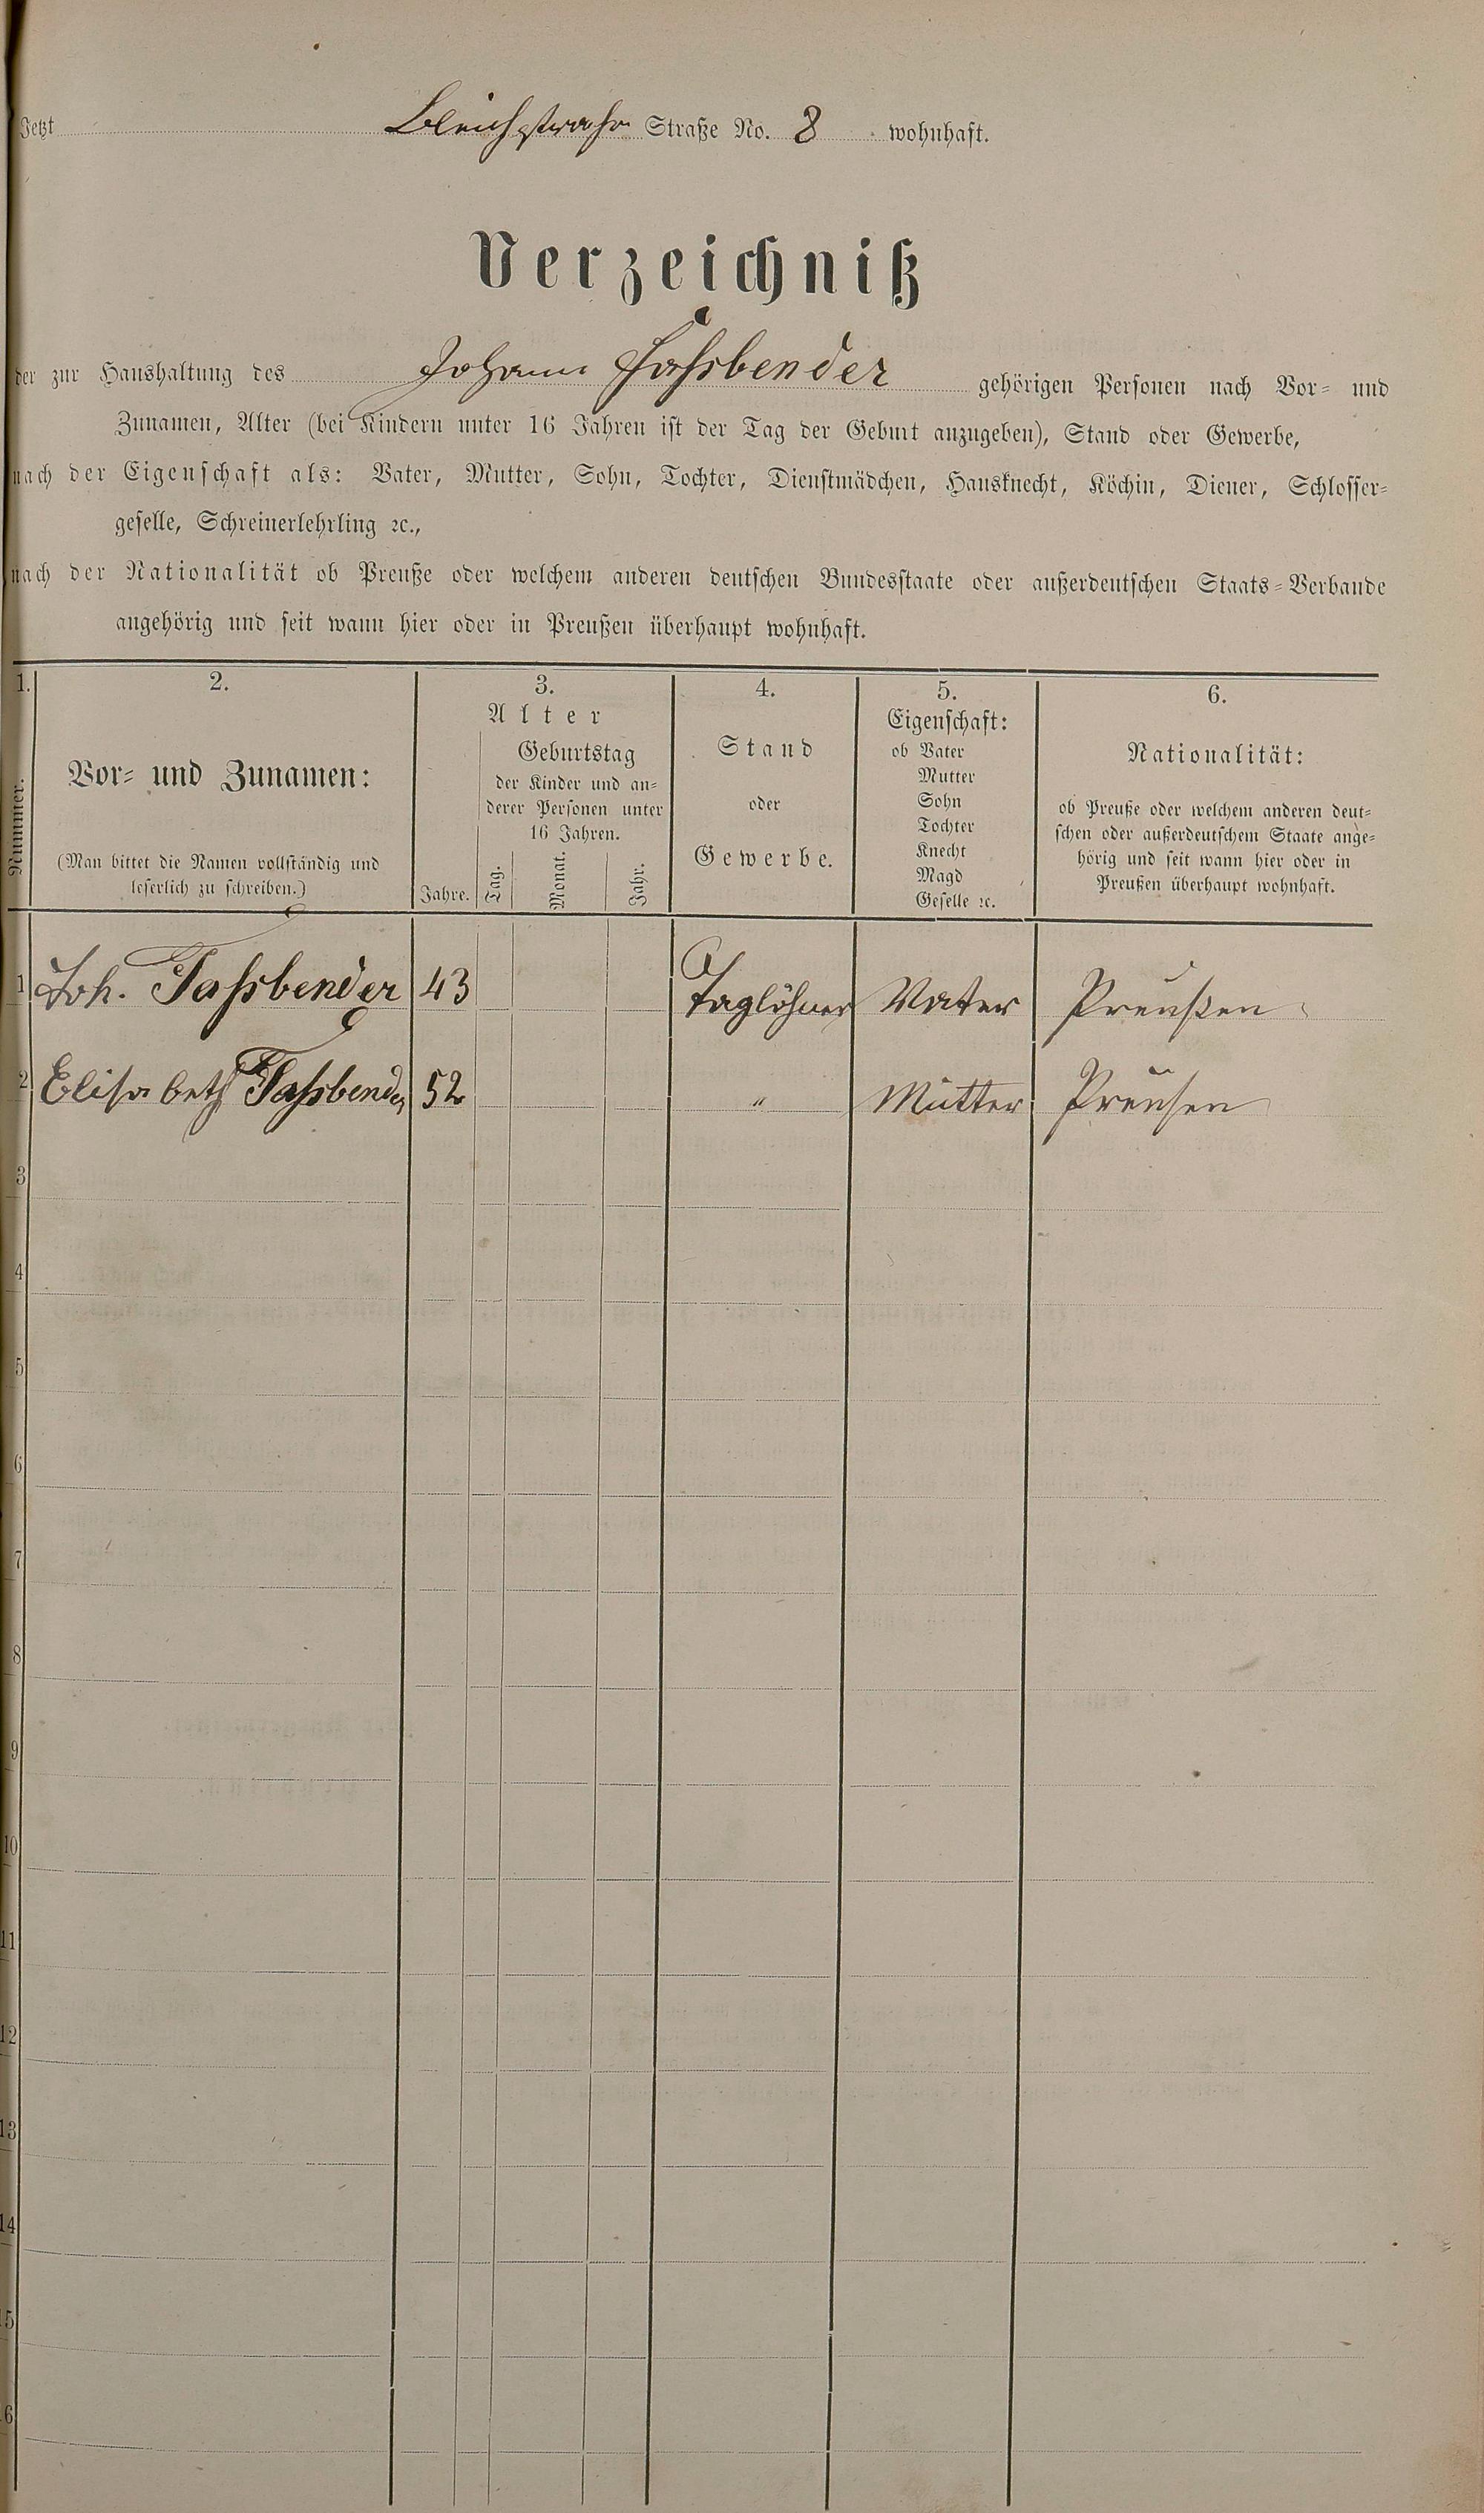 Jetzt Bleichstraße Straße No. 8 wohnhaft.
Verzeichniß
der zur Haushaltung des Johann Fassbender gehörigen Personen nach Vor- und
Zunamen, Alter (bei Kindern unter 16 Jahren ist der Tag der Geburt anzugeben), Stand oder Gewerbe,
nach der Eigenschaft als: Vater, Mutter, Sohn, Tochter, Dienstmädchen, Hausknecht, Köchin, Diener, Schlosser-
geselle, Schreinerlehrling ꝛc.,
nach der Nationalität ob Preuße oder welchem anderen deutschen Bundesstaate oder außerdeutschen Staats-Verbande
angehörig und seit wann hier oder in Preußen überhaupt wohnhaft.
1.
Nummer.
2.
Vor- und Zunamen:
(Man bittet die Namen vollständig und
leserlich zu schreiben.)
3.
Alter
Jahre.
Geburtstag
der Kinder und an-
derer Personen unter
16 Jahren.
Tag.
Monat.
Jahr.
4.
Stand
oder
Gewerbe.
5.
Eigenschaft:
ob Vater
Mutter
Sohn
Tochter
Knecht
Magd
Geselle ꝛc.
6.
Nationalität:
ob Preuße oder welchem anderen deut-
schen oder außerdeutschem Staate ange-
hörig und seit wann hier oder in
Preußen überhaupt wohnhaft.
1 Joh. Fassbender 43 Taglöhner Vater Preußen
2 Elisabeth Fassbender 52 " Mutter Preusen
3
4
5
6
7
8
9
10
11
12
13
14
15
16